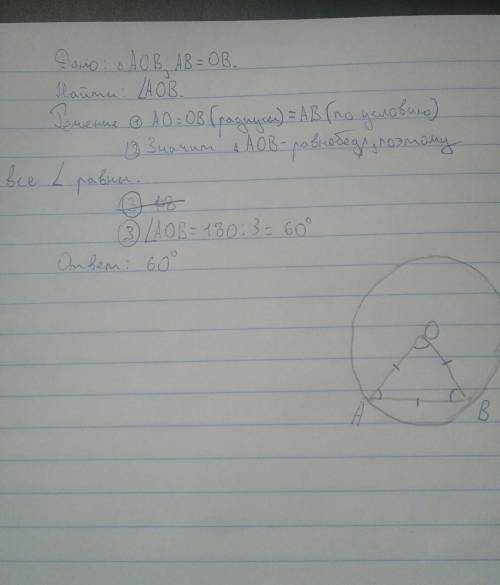 Дано: △AOB, AB=OB.
Найти: ∠AOB.
Решение ① AO=OB(радиусы)=AB(по условию)
② Значит △AOB-равнобедр, поэтому
все ∠ равны.
③ 18
③ ∠AOB=180:3=60°
Ответ: 60°
O
A B